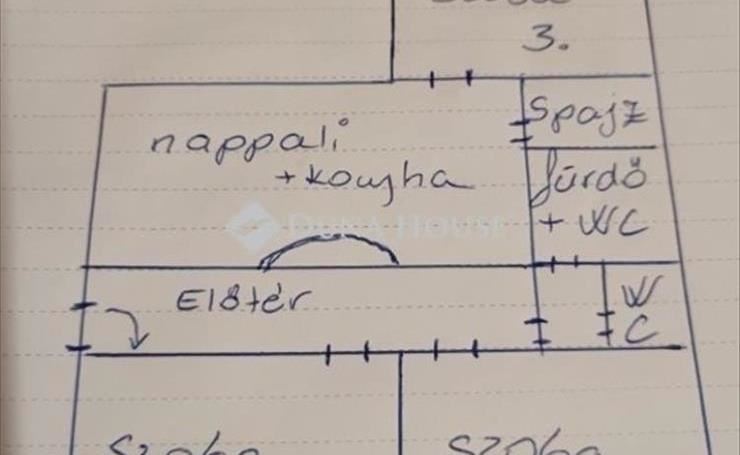 3.
nappali
+konyha
Spajz
fürdő
+ WC
DUNA HOUSE
Előtér
W
C
szoba
szoba